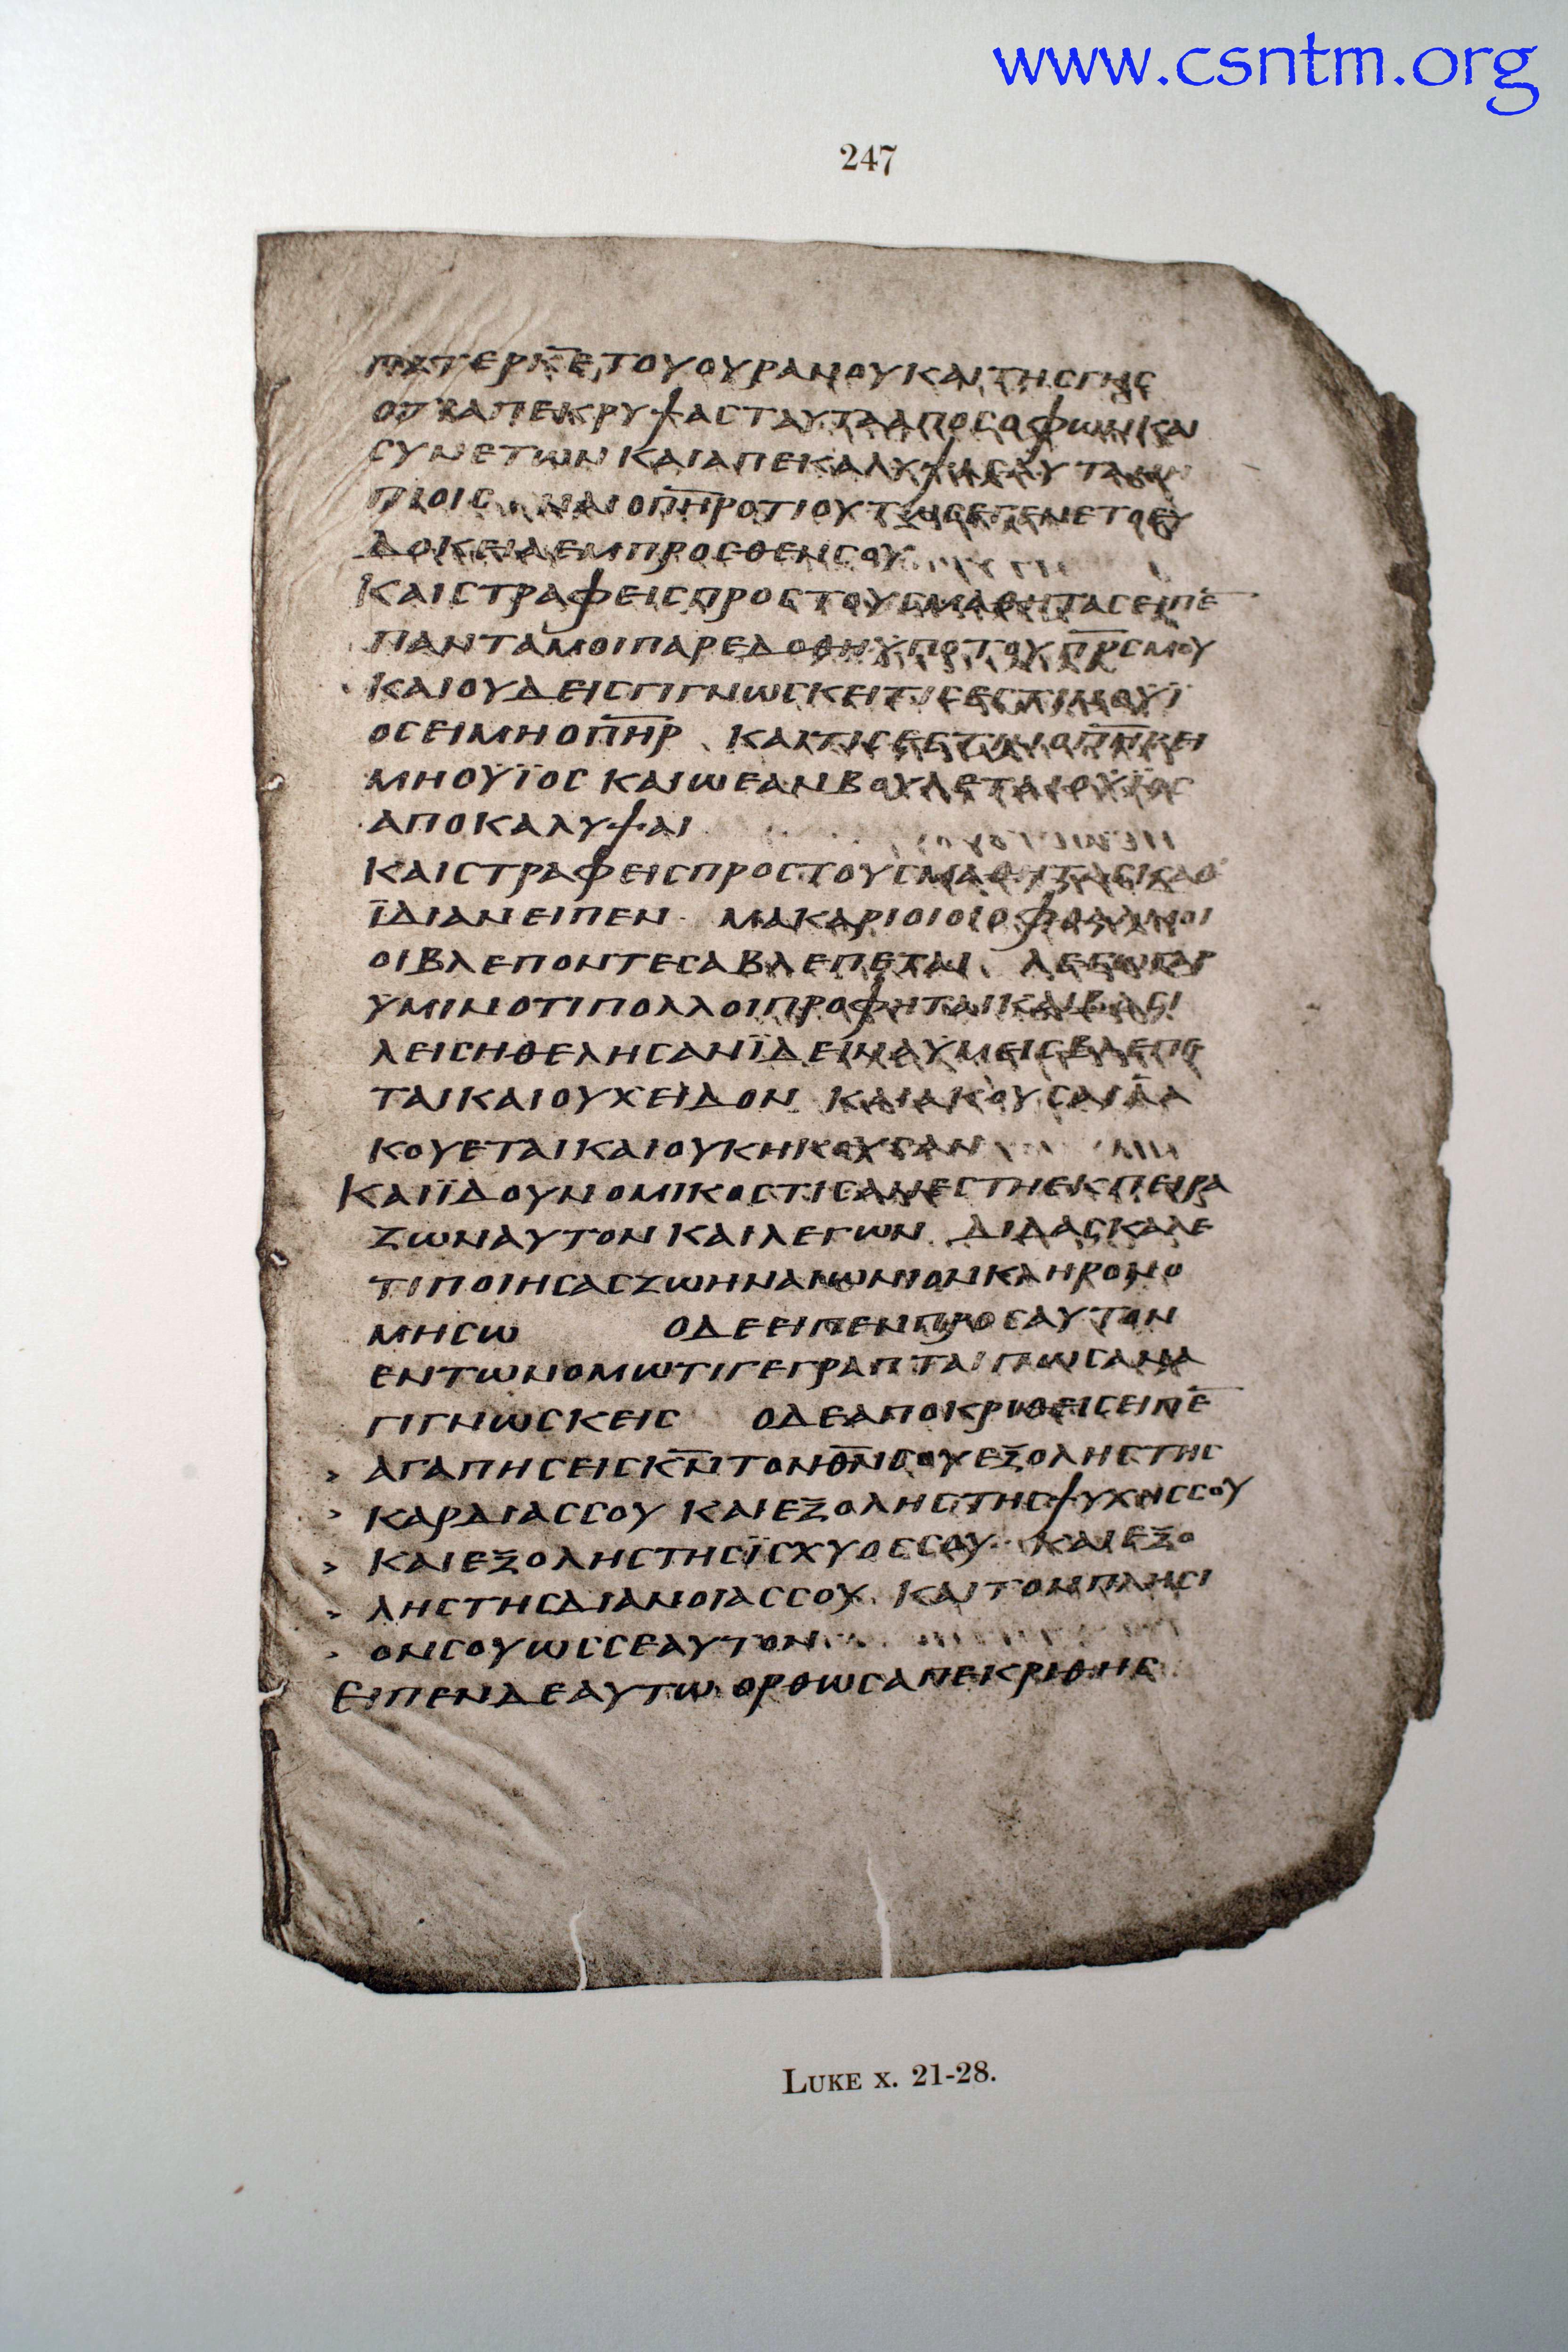 www.csntm.org
247
ΠΑΤΕΡΚ̅Ε̅ΤΟΥΟΥΡΑΝΟΥΚΑΙΤΗΣΓΗΣ
ΟΤΙΑΠΕΚΡΥΨΑΣΤΑΥΤΑΑΠΟΣΟΦΩΝΚΑΙ
ΣΥΝΕΤΩΝΚΑΙΑΠΕΚΑΛΥΨΑΣΑΥΤΑΝΗ
ΠΙΟΙΣ ΝΑΙΟΠ̅Η̅Ρ̅ΟΤΙΟΥΤΩΣΕΓΕΝΕΤΟΕΥ
ΔΟΚΕΙΑΕΜΠΡΟΣΘΕΝΣΟΥ
ΚΑΙΣΤΡΑΦΕΙΣΠΡΟΣΤΟΥΣΜΑΘΗΤΑΣΕΙΠΕ̅
ΠΑΝΤΑΜΟΙΠΑΡΕΔΟΘΗΫΠΟΤΟΥΠ̅Ρ̅Σ̅ΜΟΥ
ΚΑΙΟΥΔΕΙΣΓΙΓΝΩΣΚΕΙΤΙΣΕΣΤΙΝΟΫΪ
ΟΣΕΙΜΗΟΠ̅Η̅Ρ̅ ΚΑΙΤΙΣΕΣΤΙΝΟΠ̅Η̅Ρ̅ΕΙ
ΜΗΟΫΪΟΣ ΚΑΙΩΕΑΝΒΟΥΛΕΤΑΙΟΫΪΟΣ
ΑΠΟΚΑΛΥΨΑΙ
ΚΑΙΣΤΡΑΦΕΙΣΠΡΟΣΤΟΥΣΜΑΘΗΤΑΣΚΑΘ
ΪΔΙΑΝΕΙΠΕΝ ΜΑΚΑΡΙΟΙΟΙΟΦΘΑΛΜΟΙ
ΟΙΒΛΕΠΟΝΤΕΣΑΒΛΕΠΕΤΑΙ ΛΕΓΩΓΑΡ
ΫΜΙΝΟΤΙΠΟΛΛΟΙΠΡΟΦΗΤΑΙΚΑΙΒΑΣΙ
ΛΕΙΣΗΘΕΛΗΣΑΝΪΔΕΙΝΑΫΜΕΙΣΒΛΕΠΕ
ΤΑΙΚΑΙΟΥΧΕΙΔΟΝ ΚΑΙΑΚΟΥΣΑΙΑΑ
ΚΟΥΕΤΑΙΚΑΙΟΥΚΗΚΟΥΣΑΝ
ΚΑΙΪΔΟΥΝΟΜΙΚΟΣΤΙΣΑΝΕΣΤΗΕΚΠΕΙΡΑ
ΖΩΝΑΥΤΟΝΚΑΙΛΕΓΩΝ ΔΙΔΑΣΚΑΛΕ
ΤΙΠΟΙΗΣΑΣΖΩΗΝΑΙΩΝΙΟΝΚΛΗΡΟΝΟ
ΜΗΣΩ ΟΔΕΕΙΠΕΝΠΡΟΣΑΥΤΟΝ
ΕΝΤΩΝΟΜΩΤΙΓΕΓΡΑΠΤΑΙΠΩΣΑΝΑ
ΓΙΓΝΩΣΚΕΙΣ ΟΔΕΑΠΟΚΡΙΘΕΙΣΕΙΠΕ̅
> ΑΓΑΠΗΣΕΙΣΚ̅Ν̅ΤΟΝΘ̅Ν̅ΣΟΥΕΞΟΛΗΣΤΗΣ
> ΚΑΡΔΙΑΣΣΟΥ ΚΑΙΕΞΟΛΗΣΤΗΣΨΥΧΗΣΣΟΥ
> ΚΑΙΕΞΟΛΗΣΤΗΣΪΣΧΥΟΣΣΟΥ ΚΑΙΕΞΟ
> ΛΗΣΤΗΣΔΙΑΝΟΙΑΣΣΟΥ ΚΑΙΤΟΝΠΛΗΣΙ
> ΟΝΣΟΥΩΣΣΕΑΥΤΟΝ
ΕΙΠΕΝΔΕΑΥΤΩ ΟΡΘΩΣΑΠΕΚΡΙΘΗΣ
LUKE X. 21-28.